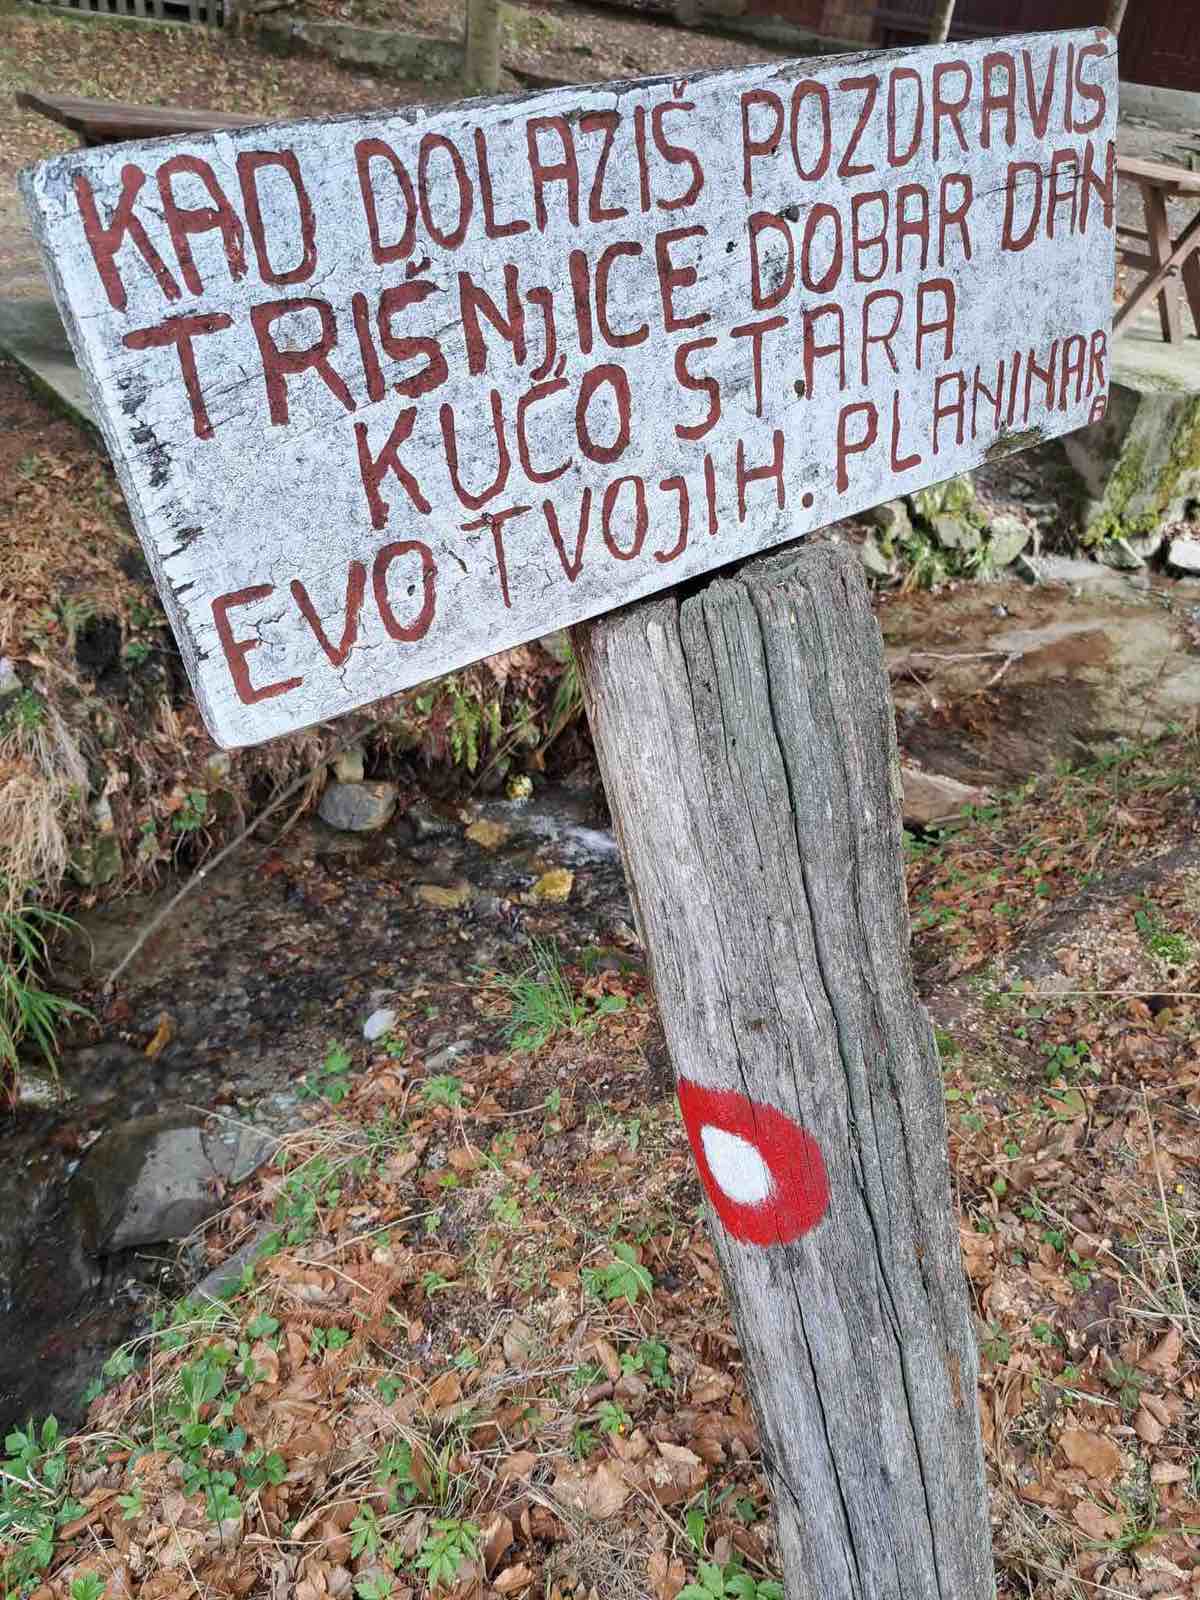 KAD DOLAZIŠ POZDRAVIŠ
TRIŠNJICE DOBAR DAN
KUĆO STARA
EVO TVOJIH. PLANINAR
A